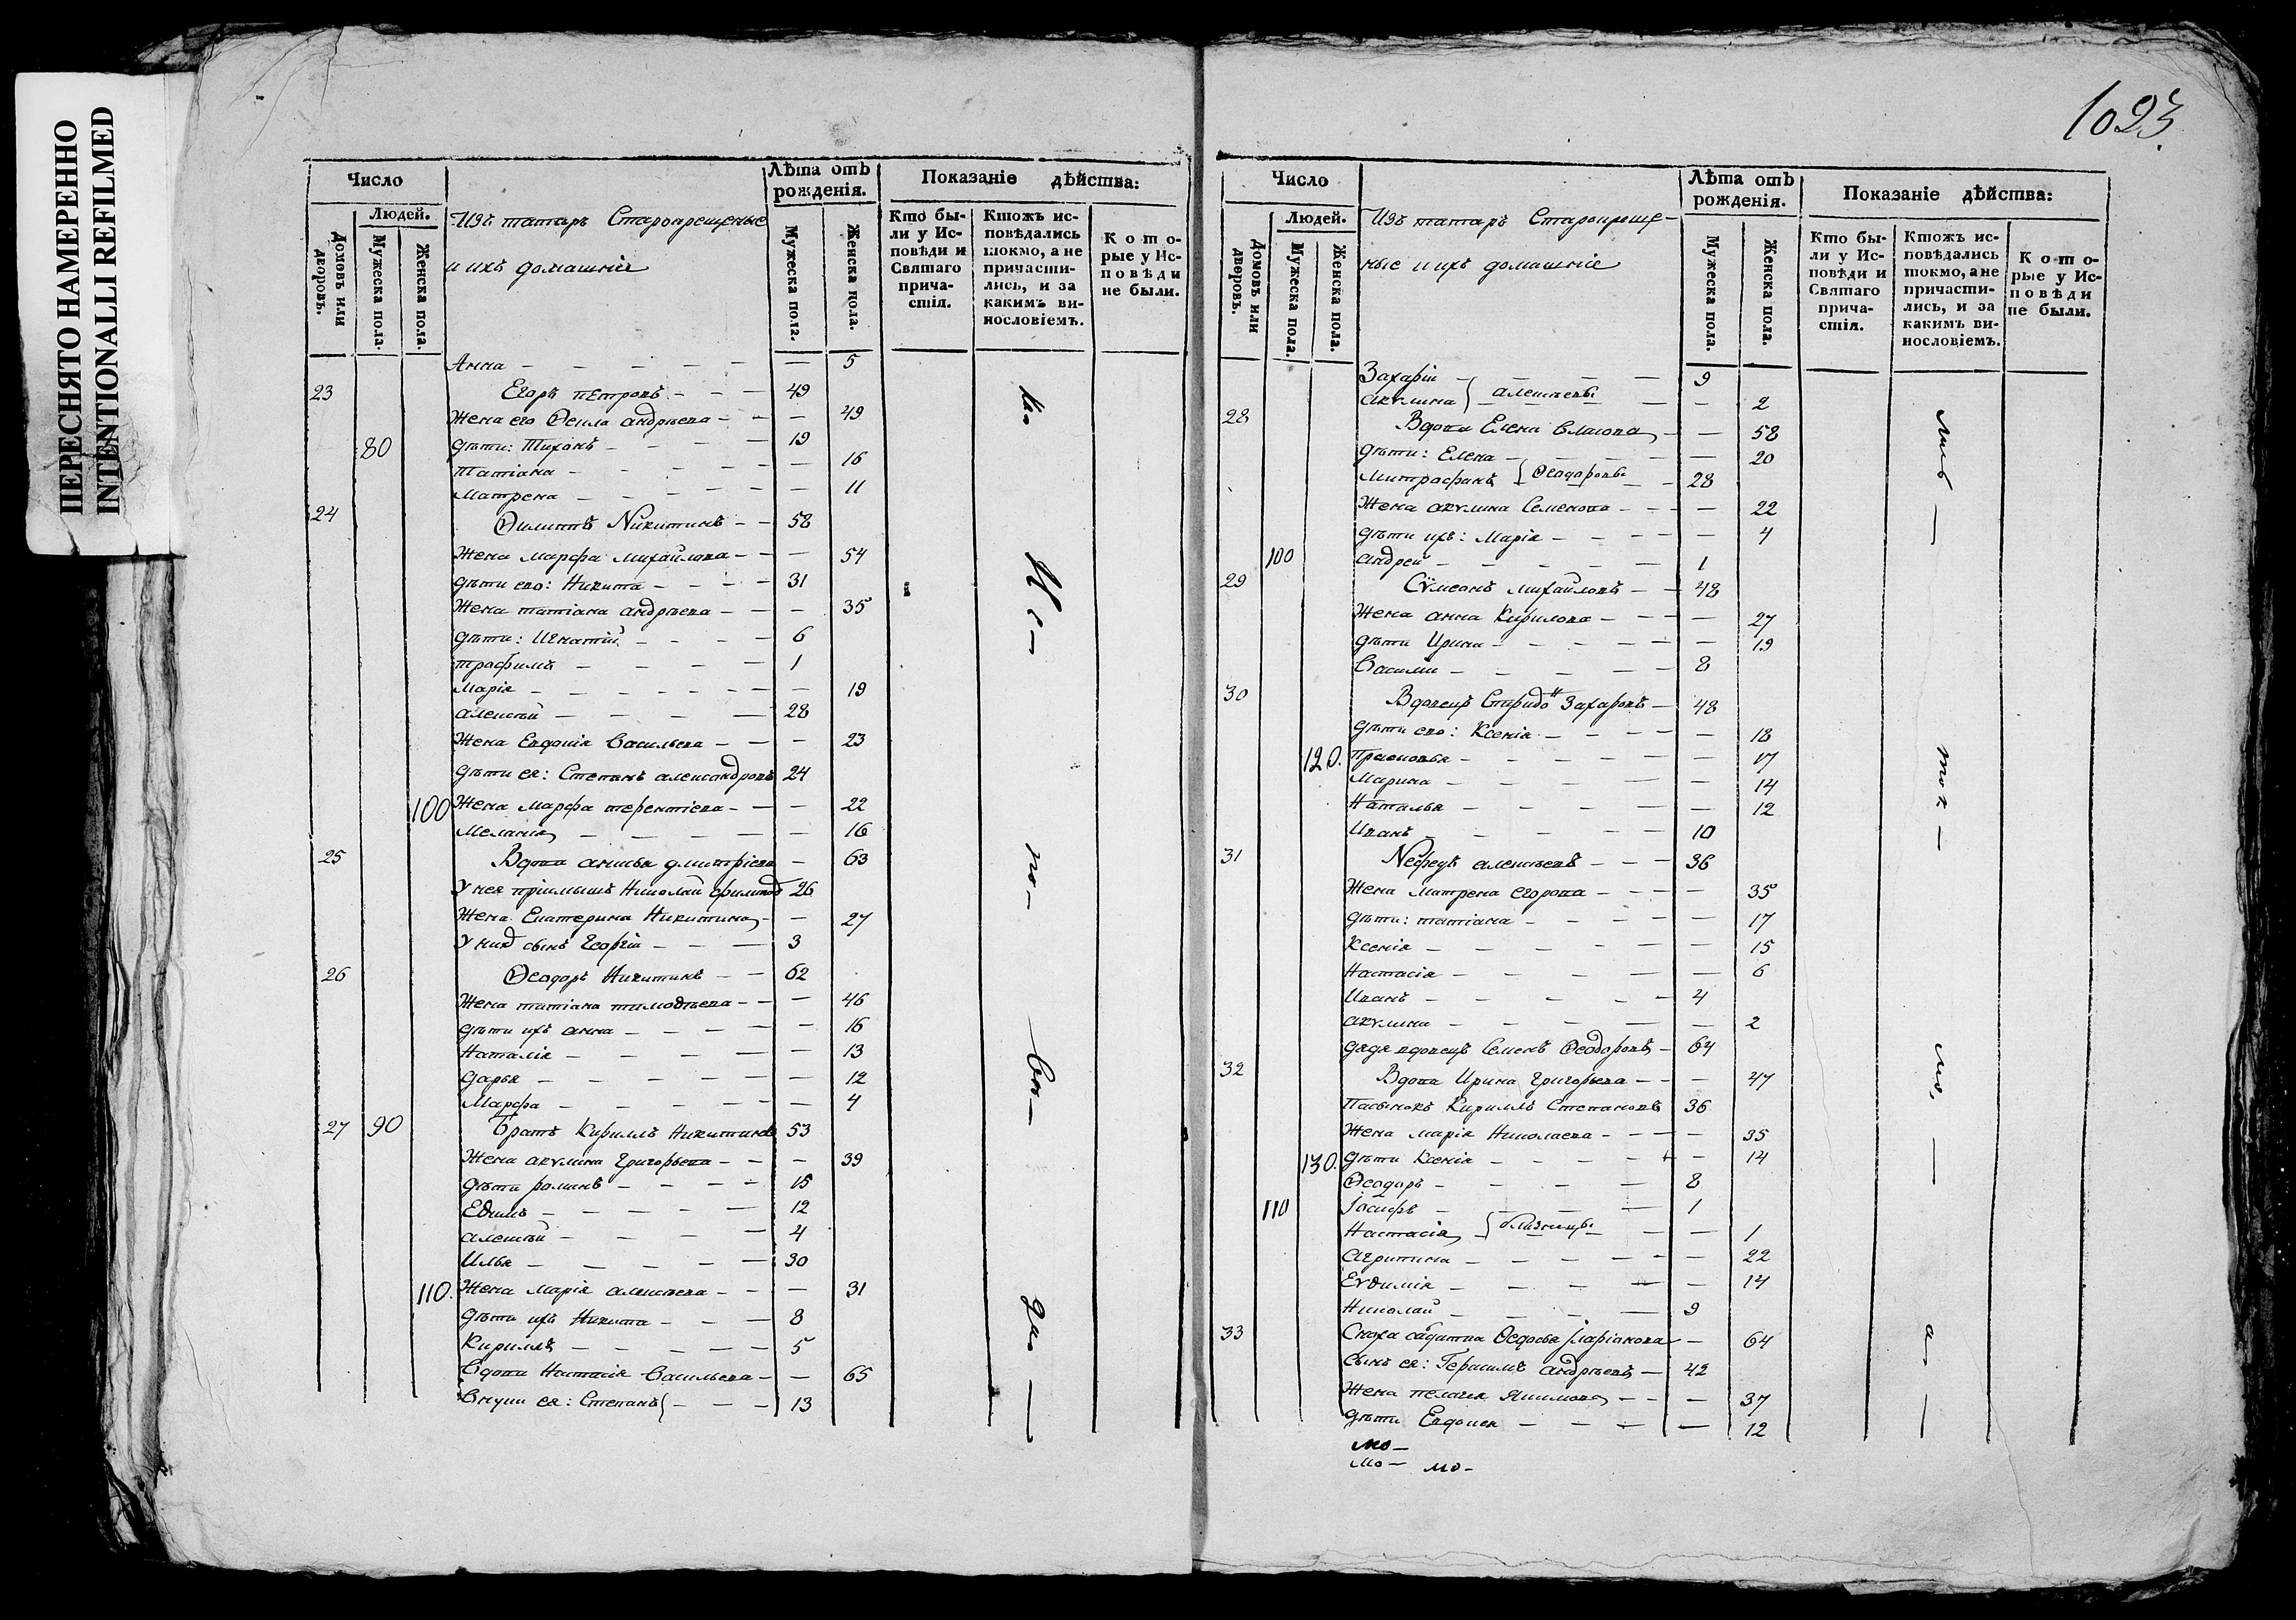 ПЕРЕСНЯТО НАМЕРЕННО
INTENTIONALLI REFILMED
Число
Людей.
Домовъ или дворовъ.
Мужеска пола.
Женска пола.
Изъ татаръ Старокрещеные
и ихъ домашніе
Лѣта отъ рожденія.
Мужеска пола.
Женска пола.
Показаніе дѣйства:
Кто бы-
ли у Ис-
повѣди и
Святаго
прича-
стія.
Ктожъ ис-
повѣдались
токмо, а не
причасти-
лись, и за
какимъ ви-
нословіемъ.
Кото-
рые у Ис-
повѣди
не были.
Анна — 5
23 Егоръ Петровъ 49
Жена его Ѳекла андрѣева — 49
80 дѣти: Тихонъ 19
Татіана — 16
Матрена — 11
24 Филиппъ Никитинъ 58
Жена марфа михайлова — 54
дѣти его: Никита 31
Жена татіана андрѣева — 35
дѣти: Игнатій 6
трофимъ 1
Марія — 19
алексѣй 28
Жена Евдокія Васильева — 23
дѣти ея: Степанъ александровъ 24
100 Жена марфа терентіева — 22
Меланія — 16
25 Вдова анисья дмитріева — 63
У нея пріимышъ Николай 26
Жена Екатерина Никитина — 27
У них сынъ Георгій 3
26 Ѳеодоръ Никитинъ 62
Жена татіана тимоѳѣева — 46
дѣти ихъ анна — 16
Наталія — 13
дарья — 12
Марфа — 4
27 90 Братъ Кириллъ Никитинъ 53
Жена акулина Григорьева — 39
дѣти романъ 15
Еѳимъ 12
алексѣй 4
Илья 30
110. Жена Марія алексѣева — 31
дѣти ихъ Никита 8
Кириллъ 5
Вдова Настасія Васильева — 65
Внуки ея: Степанъ 13
1023
Число
Людей.
Домовъ или дворовъ.
Мужеска пола.
Женска пола.
Изъ татаръ Старокреще-
ные и ихъ домашніе
Лѣта отъ рожденія.
Мужеска пола.
Женска пола.
Показаніе дѣйства:
Кто бы-
ли у Ис-
повѣди и
Святаго
прича-
стія.
Ктожъ ис-
повѣдались
токмо, а не
причасти-
лись, и за
какимъ ви-
нословіемъ.
Кото-
рые у Ис-
повѣди
не были.
Захарій 9
акулина } алексѣевы — 2
28 Вдова Елена Власова — 58
дѣти: Елена — 20
Митрофанъ { Ѳеодоровы 28
Жена акулина Семенова — 22
дѣти ихъ: Марія — 4
100 андрей 1
29 Сѵмеонъ михайловъ 48
Жена анна Кирилова — 27
дѣти Ирина — 19
Василій 8
30 Вдовецъ Захаровъ 48
дѣти его: Ксенія — 18
120. Прасковья — 17
Марина — 14
Наталья — 12
Иванъ 10
31 Неѳедъ алексѣевъ 36
Жена матрена егорова — 35
дѣти: татіана — 17
Ксенія — 15
Настасія — 6
Иванъ 4
акулина — 2
дядя вдовецъ Семенъ Ѳеодоровъ 64
32 Вдова Ирина Григорьева — 47
Пасынокъ Кириллъ Степановъ 36
Жена марія Николаева — 35
130. дѣти Ксенія — 14
Ѳеодоръ 8
110 Іосифъ 1
Настасія } близнецы — 1
агрипина — 22
Еѵѳимія — 14
Николай 9
33 Сноха Ѳедосья — 64
Сынъ ея: Герасимъ андрѣевъ 42
Жена пелагея якимова — 37
дѣти Евдокея — 12
мо—
мо— мо—